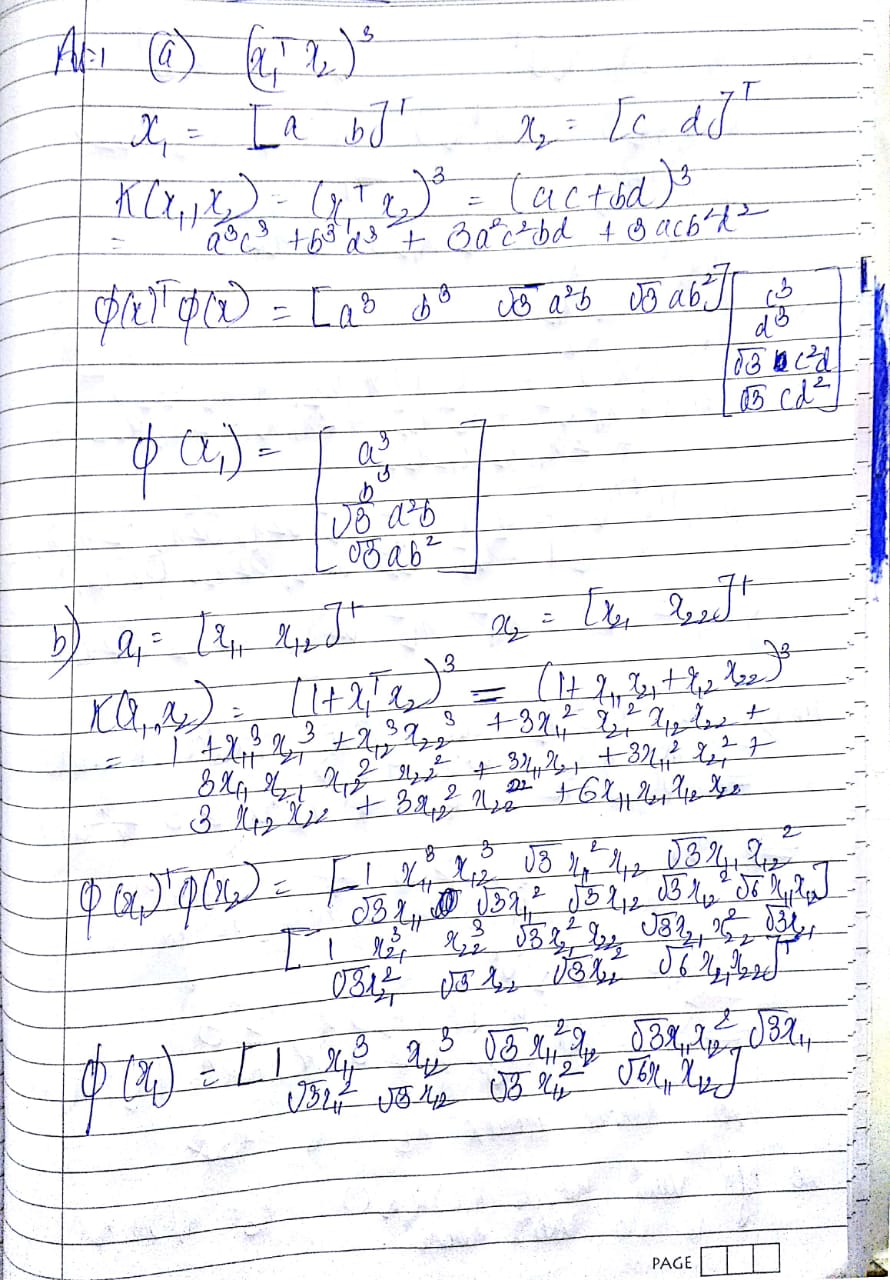 A-1 (a) (x₁ᵀ x₂)³
x₁ = [a b]ᵀ x₂ = [c d]ᵀ
K(x₁, x₂) = (x₁ᵀ x₂)³ = (ac + bd)³
= a³c³ + b³d³ + 3a²c²bd + 3acb²d²
φ(x)ᵀ φ(x) = [a³ b³ √3 a²b √3 ab²] [c³
d³
√3 c²d
√3 cd²]
φ(x₁) = [a³
b³
√3 a²b
√3 ab²]
b) x₁ = [x₁₁ x₁₂]ᵀ x₂ = [x₂₁ x₂₂]ᵀ
K(x₁, x₂) = (1 + x₁ᵀ x₂)³ = (1 + x₁₁x₂₁ + x₁₂x₂₂)³
= 1 + x₁₁³ x₂₁³ + x₁₂³ x₂₂³ + 3x₁₁² x₂₁² x₁₂ x₂₂ +
3x₁₁ x₂₁ x₁₂² x₂₂² + 3x₁₁x₂₁ + 3x₁₁² x₂₁² +
3 x₁₂ x₂₂ + 3x₁₂² x₂₂² + 6x₁₁x₂₁x₁₂x₂₂
φ(x₁)ᵀ φ(x₂) = [1 x₁₁³ x₁₂³ √3 x₁₁² x₁₂ √3 x₁₁ x₁₂²
√3 x₁₁ √3 x₁₁² √3 x₁₂ √3 x₁₂² √6 x₁₁x₁₂]
[1 x₂₁³ x₂₂³ √3 x₂₁² x₂₂ √3 x₂₁ x₂₂² √3 x₂₁
√3 x₂₁² √3 x₂₂ √3 x₂₂² √6 x₂₁x₂₂]ᵀ
φ(x₁) = [1 x₁₁³ x₁₂³ √3 x₁₁² x₁₂ √3 x₁₁x₁₂² √3 x₁₁
√3 x₁₁² √3 x₁₂ √3 x₁₂² √6 x₁₁ x₁₂]
PAGE